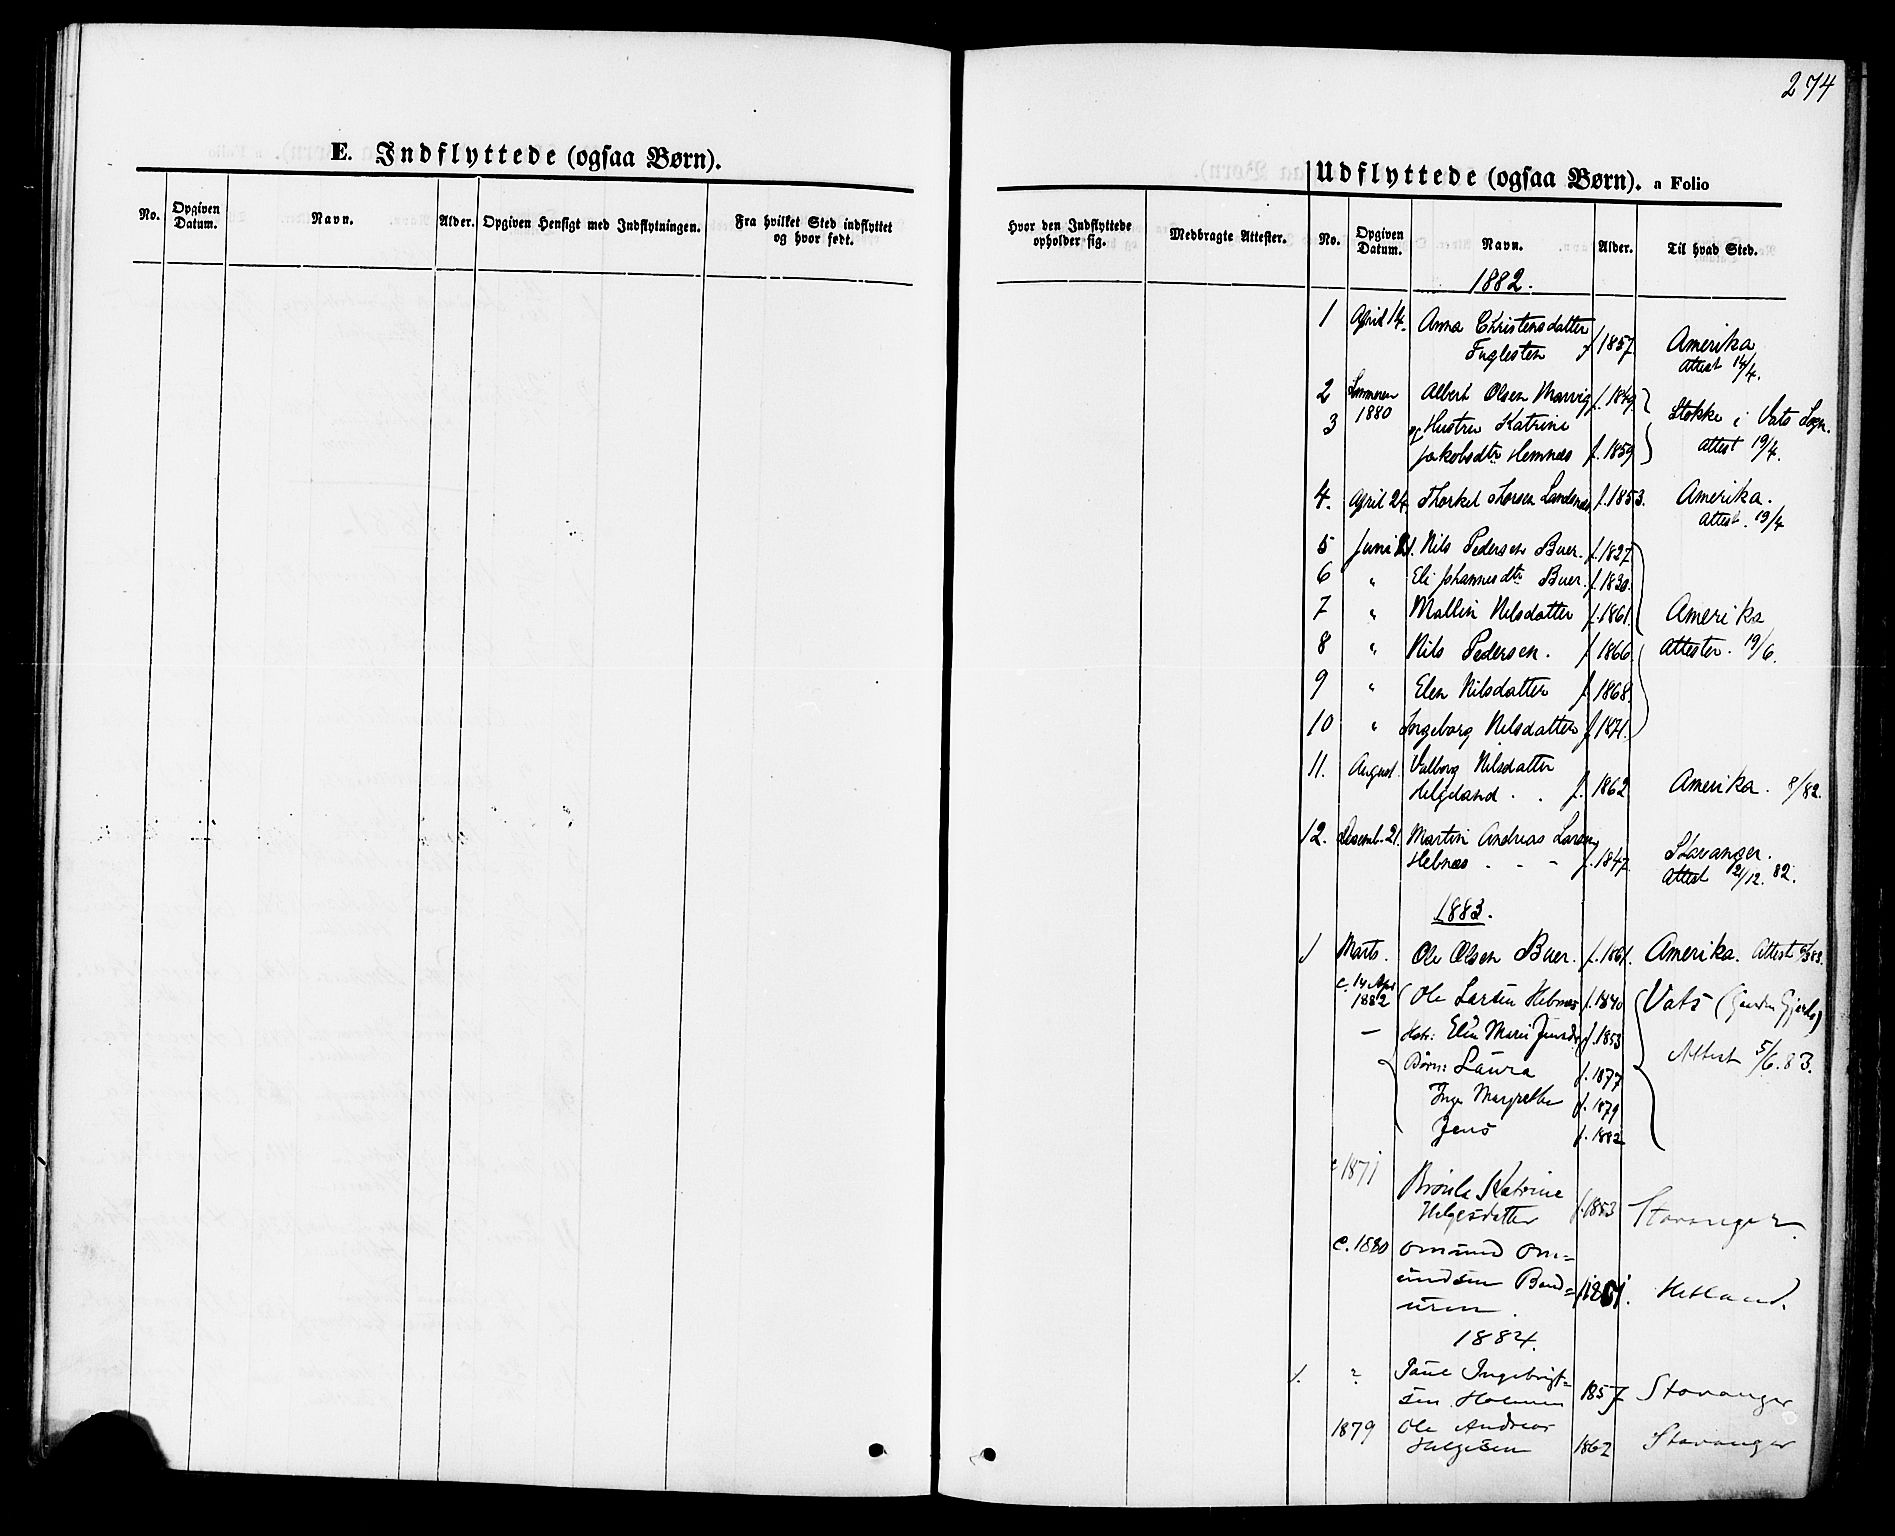 274
E. Indflyttede (ogsaa Børn).
No. Opgiven Datum. Navn. Alder. Opgiven Hensigt med Indflytningen. Fra hvilket Sted indflyttet og hvor født.
Udflyttede (ogsaa Børn). a Folio
Hvor den Indflyttede opholder sig. Medbragte Attester. No. Opgiven Datum. Navn. Alder. Til hvad Sted.
1882.
1 April 14. Anna Christensdatter
Fuglesten f 1857 Amerika
Attest 14/4.
2 Sommeren Albert Olsen Marvig f. 1849
3 1880 og Hustru Katrine Stokke i Vats Sogn.
Jakobsdtr Hemnæs f. 1859 attest 19/4.
4. April 24 Thorkel Larsen Landsnæs f. 1853. Amerika.
Attest. 19/4
5 Juni 21. Nils Pedersen Buer. f. 1827
6 " Eli Johannesdtr Buer. f. 1830.
7 " Mallin Nilsdatter f. 1861. Amerika
8 " Nils Pedersen. f 1866 Attester. 19/6.
9 " Elen Nilsdatter f. 1868.
10 " Ingeborg Nilsdatter f. 1871.
11. August. Valborg Nilsdatter
Helgeland . . f. 1862 Amerika. 8/82.
12. Decemb. 21. Martin Andreas Larsen
Hebnæs - - - f. 1847. Stavanger.
Attest 21/12. 82.
1883.
1 Marts. Ole Olsen Buer. f. 1861. Amerika. Attest
c. 14 Apr
1882 Ole Larsen Hebnæs f. 1840 Vats (
— Hstr: Elen Marie f. 1853
Børn: Laura f. 1877 Attest 5/6.83.
Inge Margrethe f. 1879
Jens f. 1882
c 1871
Katrine
Helgesdatter f. 1853 Stavanger
c. 1880 Omund Om=
undsen Band=
uren. Hetland.
1884.
1. ? Paul Ingebrigt=
sen Holmen 1857 Stavanger
1879 Ole Andreas
Helgesen 1862 Stavanger